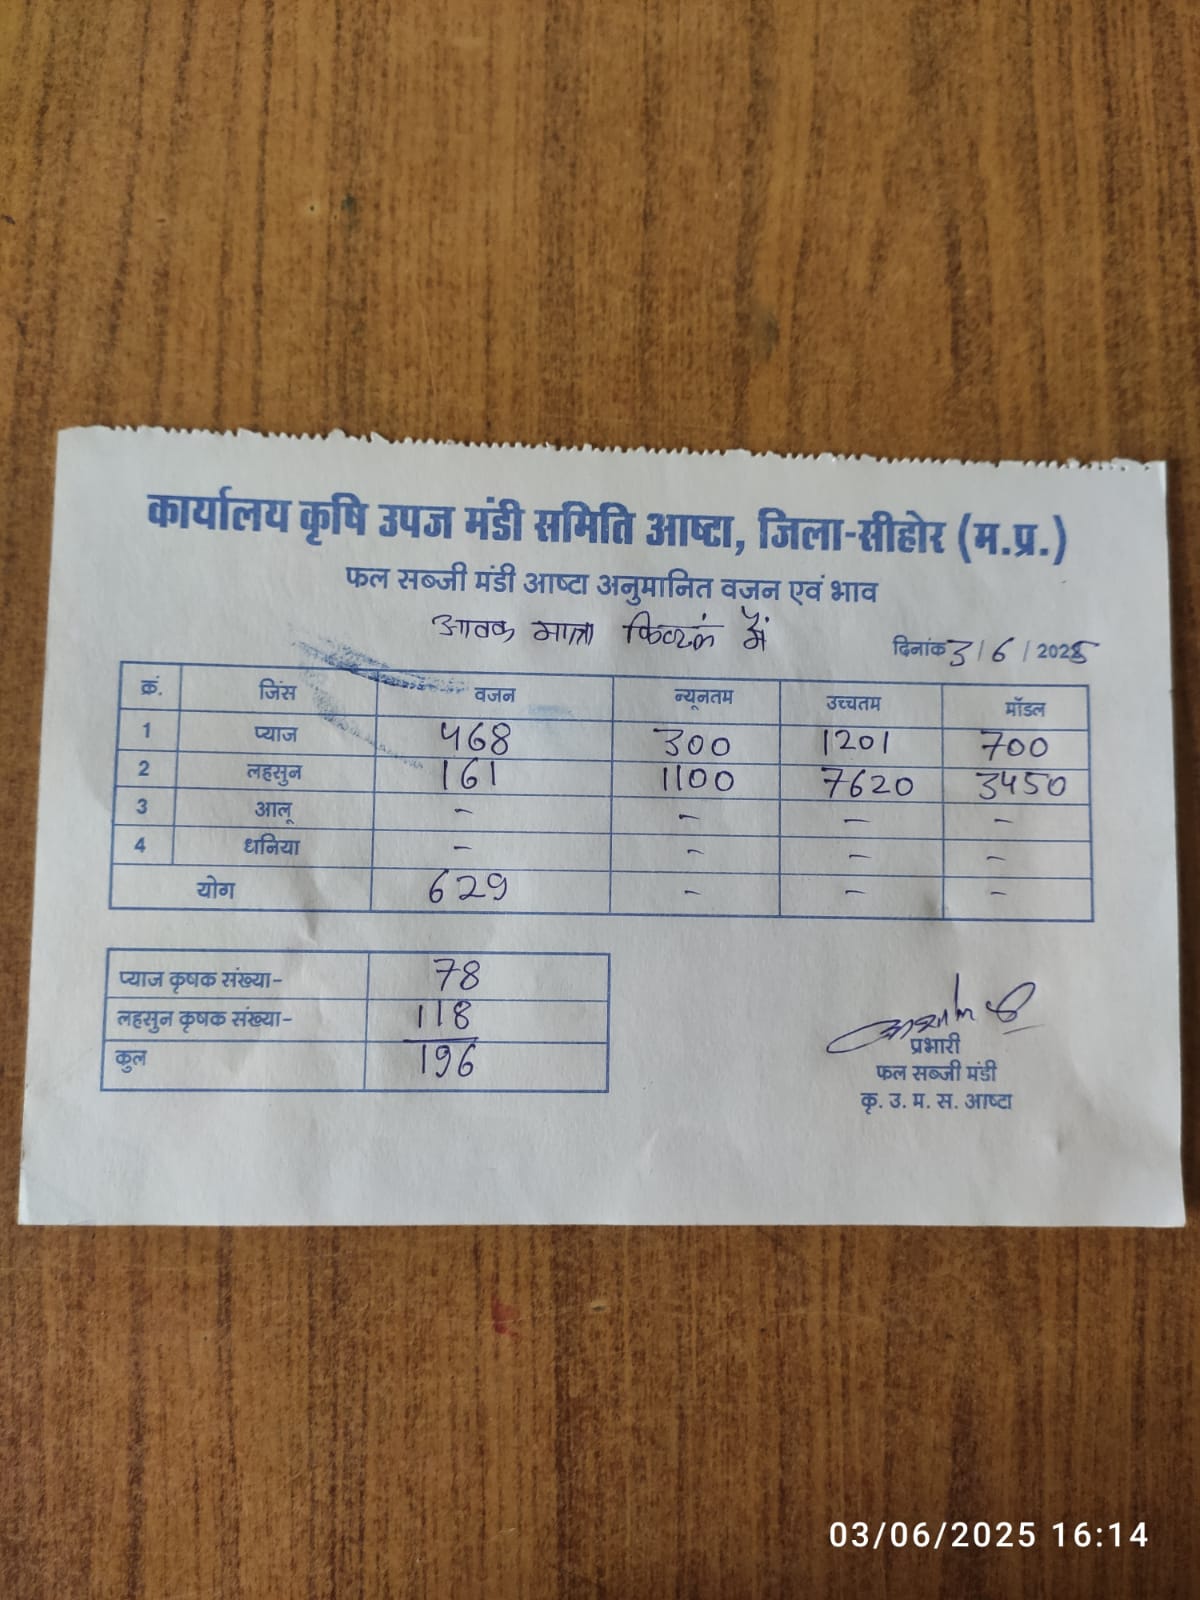 कार्यालय कृषि उपज मंडी समिति आष्टा, जिला-सीहोर (म.प्र.)
फल सब्जी मंडी आष्टा अनुमानित वजन एवं भाव
आवक मात्रा क्विंटल में
दिनांक 3/6/2025
क्रं. जिंस वजन न्यूनतम उच्चतम मॉडल
1 प्याज 468 300 1201 700
2 लहसुन 161 1100 7620 3450
3 आलू - - - -
4 धनिया - - - -
योग 629 - - -
प्याज कृषक संख्या- 78
लहसुन कृषक संख्या- 118
कुल 196
प्रभारी
फल सब्जी मंडी
कृ. उ. म. स. आष्टा
03/06/2025 16:14